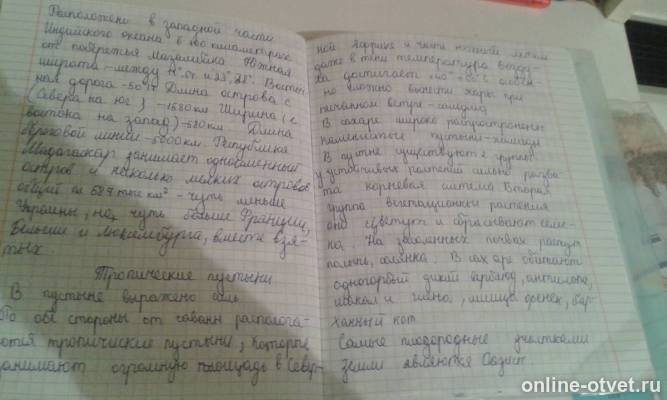 Расположен в западной части
Индийского океана в 400 километрах
от побережья Мозамбика Южная
широта - между 11° и 25°
ная дорога - 50° Длина острова с
Севера на юг) - 1580 км Ширина (с
востока на запад) - 580 км. Длина
береговой линии - 5000 км. Республика
Мадагаскар занимает одноименный
остров и несколько мелких островов
общей пл 587 тыс км² - чуть меньше
Украины, но чуть больше Франции,
Бельгии и Люксембурга, вместе взя-
тых
Тропические пустыни
В пустыне выражено
По обе стороны от саванн распола-
ются тропические пустыни, которые
занимают огромную площадь в Север-
ной Африке и части южной летом
даже в тени температура возду-
ха достигает +40°
но сложно вынести жары при
песчаном ветре - самума
В сахаре широко распространены
каменистые пустыни - хамады
В пустне существуют 2 группы
у устойчивых растений сильно разви-
та корневая система Вторая
группа вегетационный растения
они цветут и сбрасывают семе-
ка. На засоленных почвах растут
полынь, солянка. В сахаре обитают
одногорбый дикий верблюд, антилопа,
шакал и гиена, лисица фенек, бар-
ханный кот
Самые плодородные участками
земли являются Оазисы.
online-otvet.ru